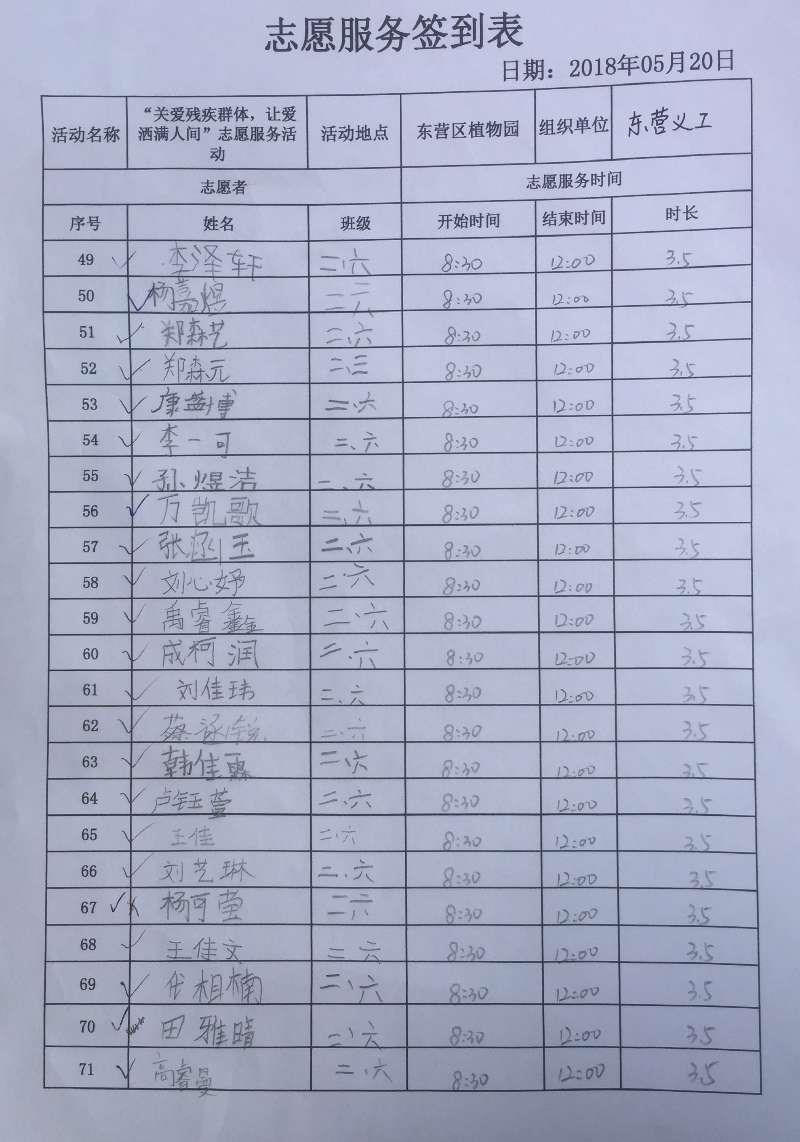 志愿服务签到表
日期：2018年05月20日
活动名称 “关爱残疾群体，让爱洒满人间”志愿服务活动 活动地点 东营区植物园 组织单位 东营义工
志愿者 志愿服务时间
序号 姓名 班级 开始时间 结束时间 时长
49 李泽轩 二.六 8:30 12:00 3.5
50 杨嘉煜 二六 8:30 12:00 3.5
51 郑森艺 二、六 8:30 12:00 3.5
52 郑森元 二.三 8:30 12:00 3.5
53 康英博 二.六 8:30 12:00 3.5
54 李一可 二、六 8:30 12:00 3.5
55 孙煜洁 二、六 8:30 12:00 3.5
56 万凯歌 二、六 8:30 12:00 3.5
57 张涵玉 二.六 8:30 12:00 3.5
58 刘心妤 二.六 8:30 12:00 3.5
59 禹睿鑫 二.六 8:30 12:00 3.5
60 成柯润 二.六 8:30 12:00 3.5
61 刘佳玮 二、六 8:30 12:00 3.5
62 蔡涵锐 二.六 8:30 12:00 3.5
63 韩佳 二、六 8:30 12:00 3.5
64 卢钰萱 二、六 8:30 12:00 3.5
65 王佳 二.六 8:30 12:00 3.5
66 刘艺琳 二、六 8:30 12:00 3.5
67 杨可莹 二六 8:30 12:00 3.5
68 王佳文 二.六 8:30 12:00 3.5
69 相楠 二、六 8:30 12:00 3.5
70 田雅晴 二、六 8:30 12:00 3.5
71 高睿曼 二.六 8:30 12:00 3.5